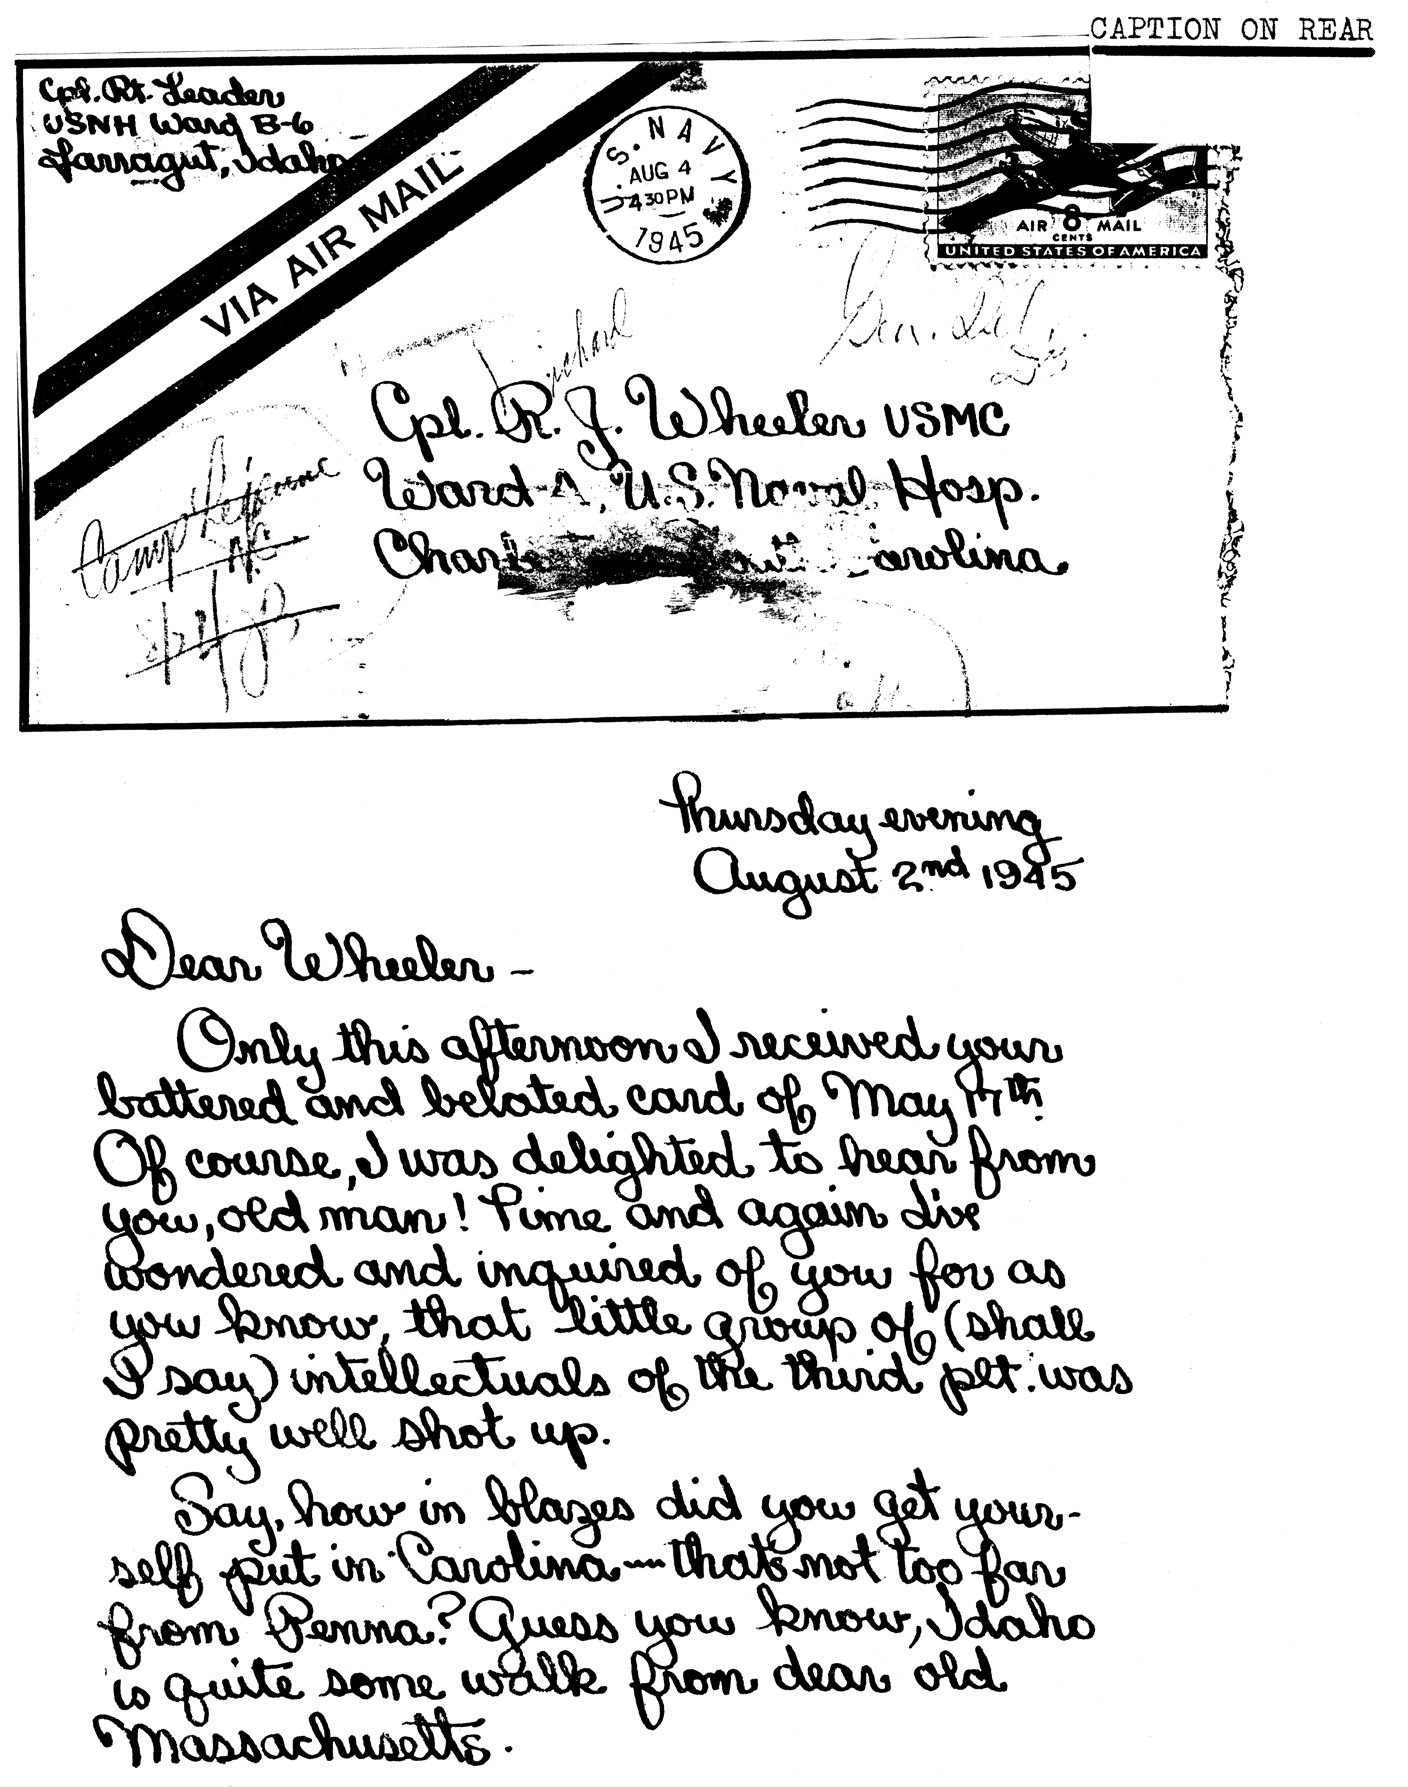 CAPTION ON REAR
Cpl. Rt. Leader
USNH Ward B-6
Farragut, Idaho
VIA AIR MAIL
U.S. NAVY
AUG 4
430PM
1945
AIR 8 MAIL
CENTS
UNITED STATES OF AMERICA
Gen. Del.
Cpl. R. J. Wheeler USMC
Ward A, U.S. Naval Hosp.
Carolina
Camp Lejeune
N.C.
Thursday evening
August 2nd 1945
Dear Wheeler -
Only this afternoon I received your
battered and belated card of May 17th.
Of course, I was delighted to hear from
you, old man! Time and again I've
wondered and inquired of you for as
you know, that little group of (shall
I say) intellectuals of the third plt. was
pretty well shot up.
Say, how in blazes did you get your-
self put in Carolina — that's not too far
from Penna? Guess you know, Idaho
is quite some walk from dear old
Massachusetts.